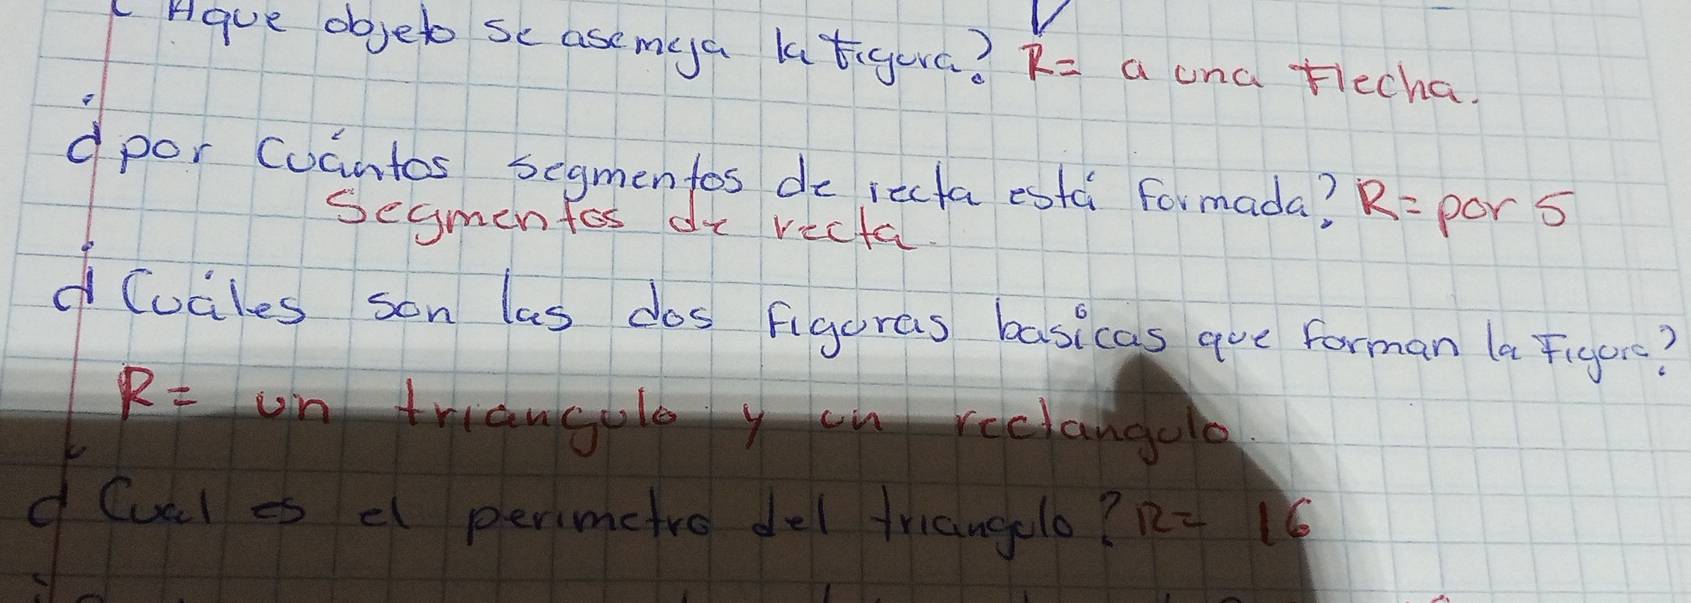 ¿Aque objeto se asemeja la figura? R= a una flecha.
¿por cuántos segmentos de recta está formada? R= por 5
segmentos de recta.
¿Cuáles son las dos figuras basicas que forman la figura?
R= un triangulo y un rectangulo.
¿Cual es el perimetro del triangulo? R= 16